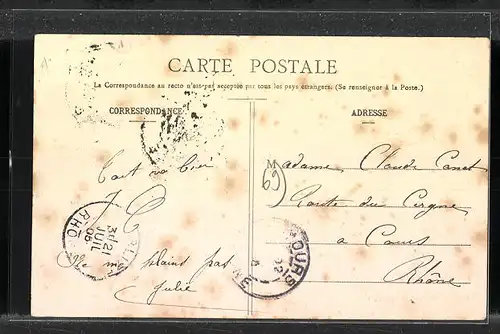 CARTE POSTALE
La Correspondance au recto n'est pas acceptée par tous les pays étrangers. (Se renseigner à la Poste.)
CORRESPONDANCE
ADRESSE
Tout va bien
J. C
Ne me plains pas
Julie
Madame Claude Canet
Route du Cergne
a Cours
Rhône
69
COURS
RHÔNE
21
JUIL
06